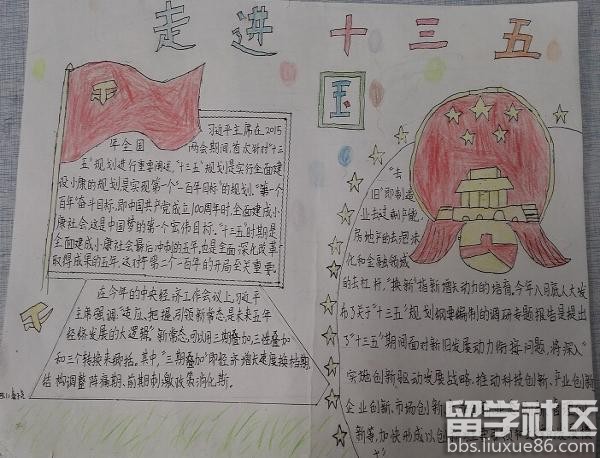 走进十三五
国
习近平主席在2015
年全国两会期间,首次听对"十三
五"规划进行重要阐述,"十三五"规划是实行全面建
设小康的规划是实现第个"一百年目标"的规划。"第一个
百年"奋斗目标,即中国共产党成立100周年时,全面建成小
康社会,这是中国梦的第一个宏伟目标。"十三五"时期是
全面建成小康社会最后冲刺的五年,也是全面深化改革
取得成果的五年,这对于第二个一百年的开局至关重要。
在今年的中央经济工作会议上,习近平
主席强调,"适应、把握、引领新常态是未来五年
经济发展的大逻辑。"新常态,可以用三期叠加、三性叠加
和三个转换来概括。其中,"三期叠加"即经济增长速度换档期、
结构调整阵痛期、前期刺激政策消化期。
"去
旧"即制造
业去过剩产能、
房地产的去泡沫
化和金融领域
的去杠杆,"换新"指新增长动力的培育。今年八月底人大发
布了关于"十三五"规划纲要编制的调研专题报告是提出
了"十三五"期间面对新旧发展动力衔接问题,将深入
实施创新驱动发展战略,推动科技创新、产业创新
企业创新、市场创新
新等,加快形成以创
留学社区
bbs.liuxue86.com